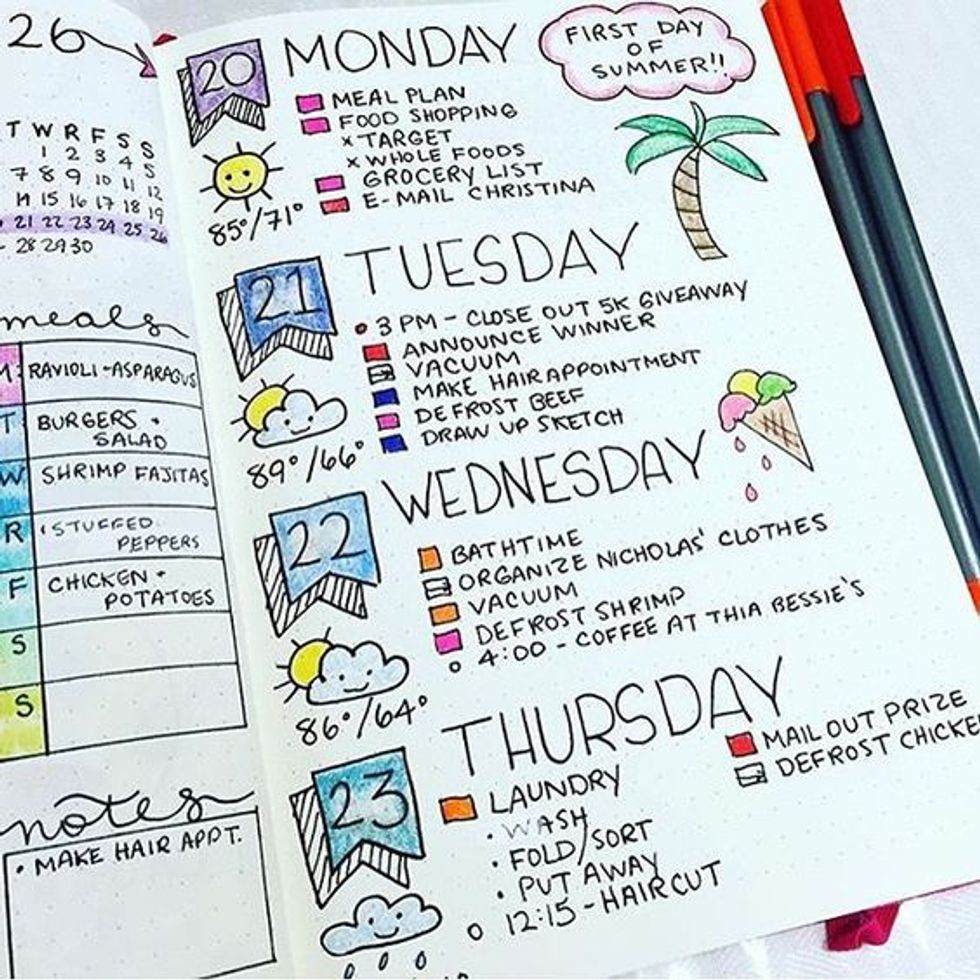 26
T W R F S S
1 2 3 4 5
7 8 9 10 11 12
14 15 16 17 18 19
21 22 23 24 25 26
28 29 30
meals
M RAVIOLI - ASPARAGUS
T BURGERS + SALAD
W SHRIMP FAJITAS
R STUFFED PEPPERS
F CHICKEN + POTATOES
S
S
notes
• MAKE HAIR APPT.
20 MONDAY
FIRST DAY
OF
SUMMER!!
MEAL PLAN
FOOD SHOPPING
x TARGET
x WHOLE FOODS
GROCERY LIST
E-MAIL CHRISTINA
85°/71°
21 TUESDAY
3 PM - CLOSE OUT 5K GIVEAWAY
ANNOUNCE WINNER
VACUUM
MAKE HAIR APPOINTMENT
DEFROST BEEF
DRAW UP SKETCH
89°/66°
22 WEDNESDAY
BATHTIME
ORGANIZE NICHOLAS' CLOTHES
VACUUM
DEFROST SHRIMP
4:00 - COFFEE AT THIA BESSIE'S
86°/64°
23 THURSDAY
LAUNDRY
• WASH
• FOLD/SORT
• PUT AWAY
12:15 - HAIRCUT
MAIL OUT PRIZE
DEFROST CHICKE